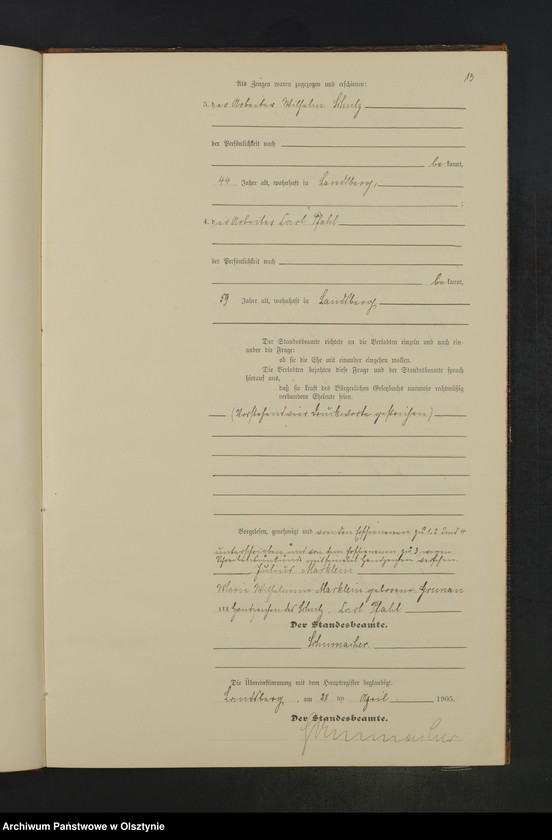 13
Als Zeugen waren zugezogen und erschienen:
3. der Arbeiter Wilhelm Schulz
der Persönlichkeit nach
be kannt,
44 Jahre alt, wohnhaft in Landsberg,
;
4. der Arbeiter Carl Pfahl
der Persönlichkeit nach
be kannt,
59 Jahre alt, wohnhaft in Landsberg,
Der Standesbeamte richtete an die Verlobten einzeln und nach ein-
ander die Frage:
ob sie die Ehe mit einander eingehen wollen.
Die Verlobten bejahten diese Frage und der Standesbeamte sprach
hierauf aus,
daß sie kraft des Bürgerlichen Gesetzbuchs nunmehr rechtmäßig
verbundene Eheleute seien.
(Vorstehend vier Druckworte gestrichen)
Vorgelesen, genehmigt und von den Erschienenen zu 1, 2 und 4
unterschrieben und von dem Erschienenen zu 3 wegen
Schreibensunkunde mit Handzeichen versehen.
Julius Marklein
Marie Wilhelmine Marklein geborene Grunau
xxx Handzeichen des Schulz. Carl Pfahl
Der Standesbeamte.
Schumacher.
Die Übereinstimmung mit dem Hauptregister beglaubigt.
Landsberg, am 28 ten April 1905.
Der Standesbeamte.
Schumacher
Archiwum Państwowe w Olsztynie